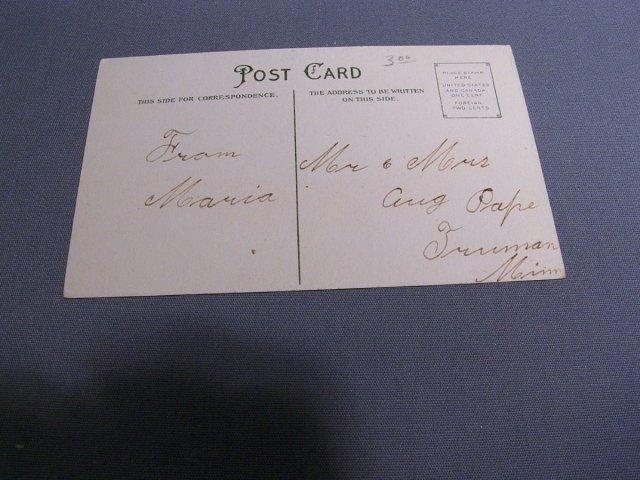 3.00
POST CARD
THIS SIDE FOR CORRESPONDENCE.
THE ADDRESS TO BE WRITTEN
ON THIS SIDE.
PLACE STAMP
HERE
UNITED STATES
AND CANADA
ONE CENT
FOREIGN
TWO CENTS
From
Maria
Mr & Mrs
Aug Pape
Truman
Minn